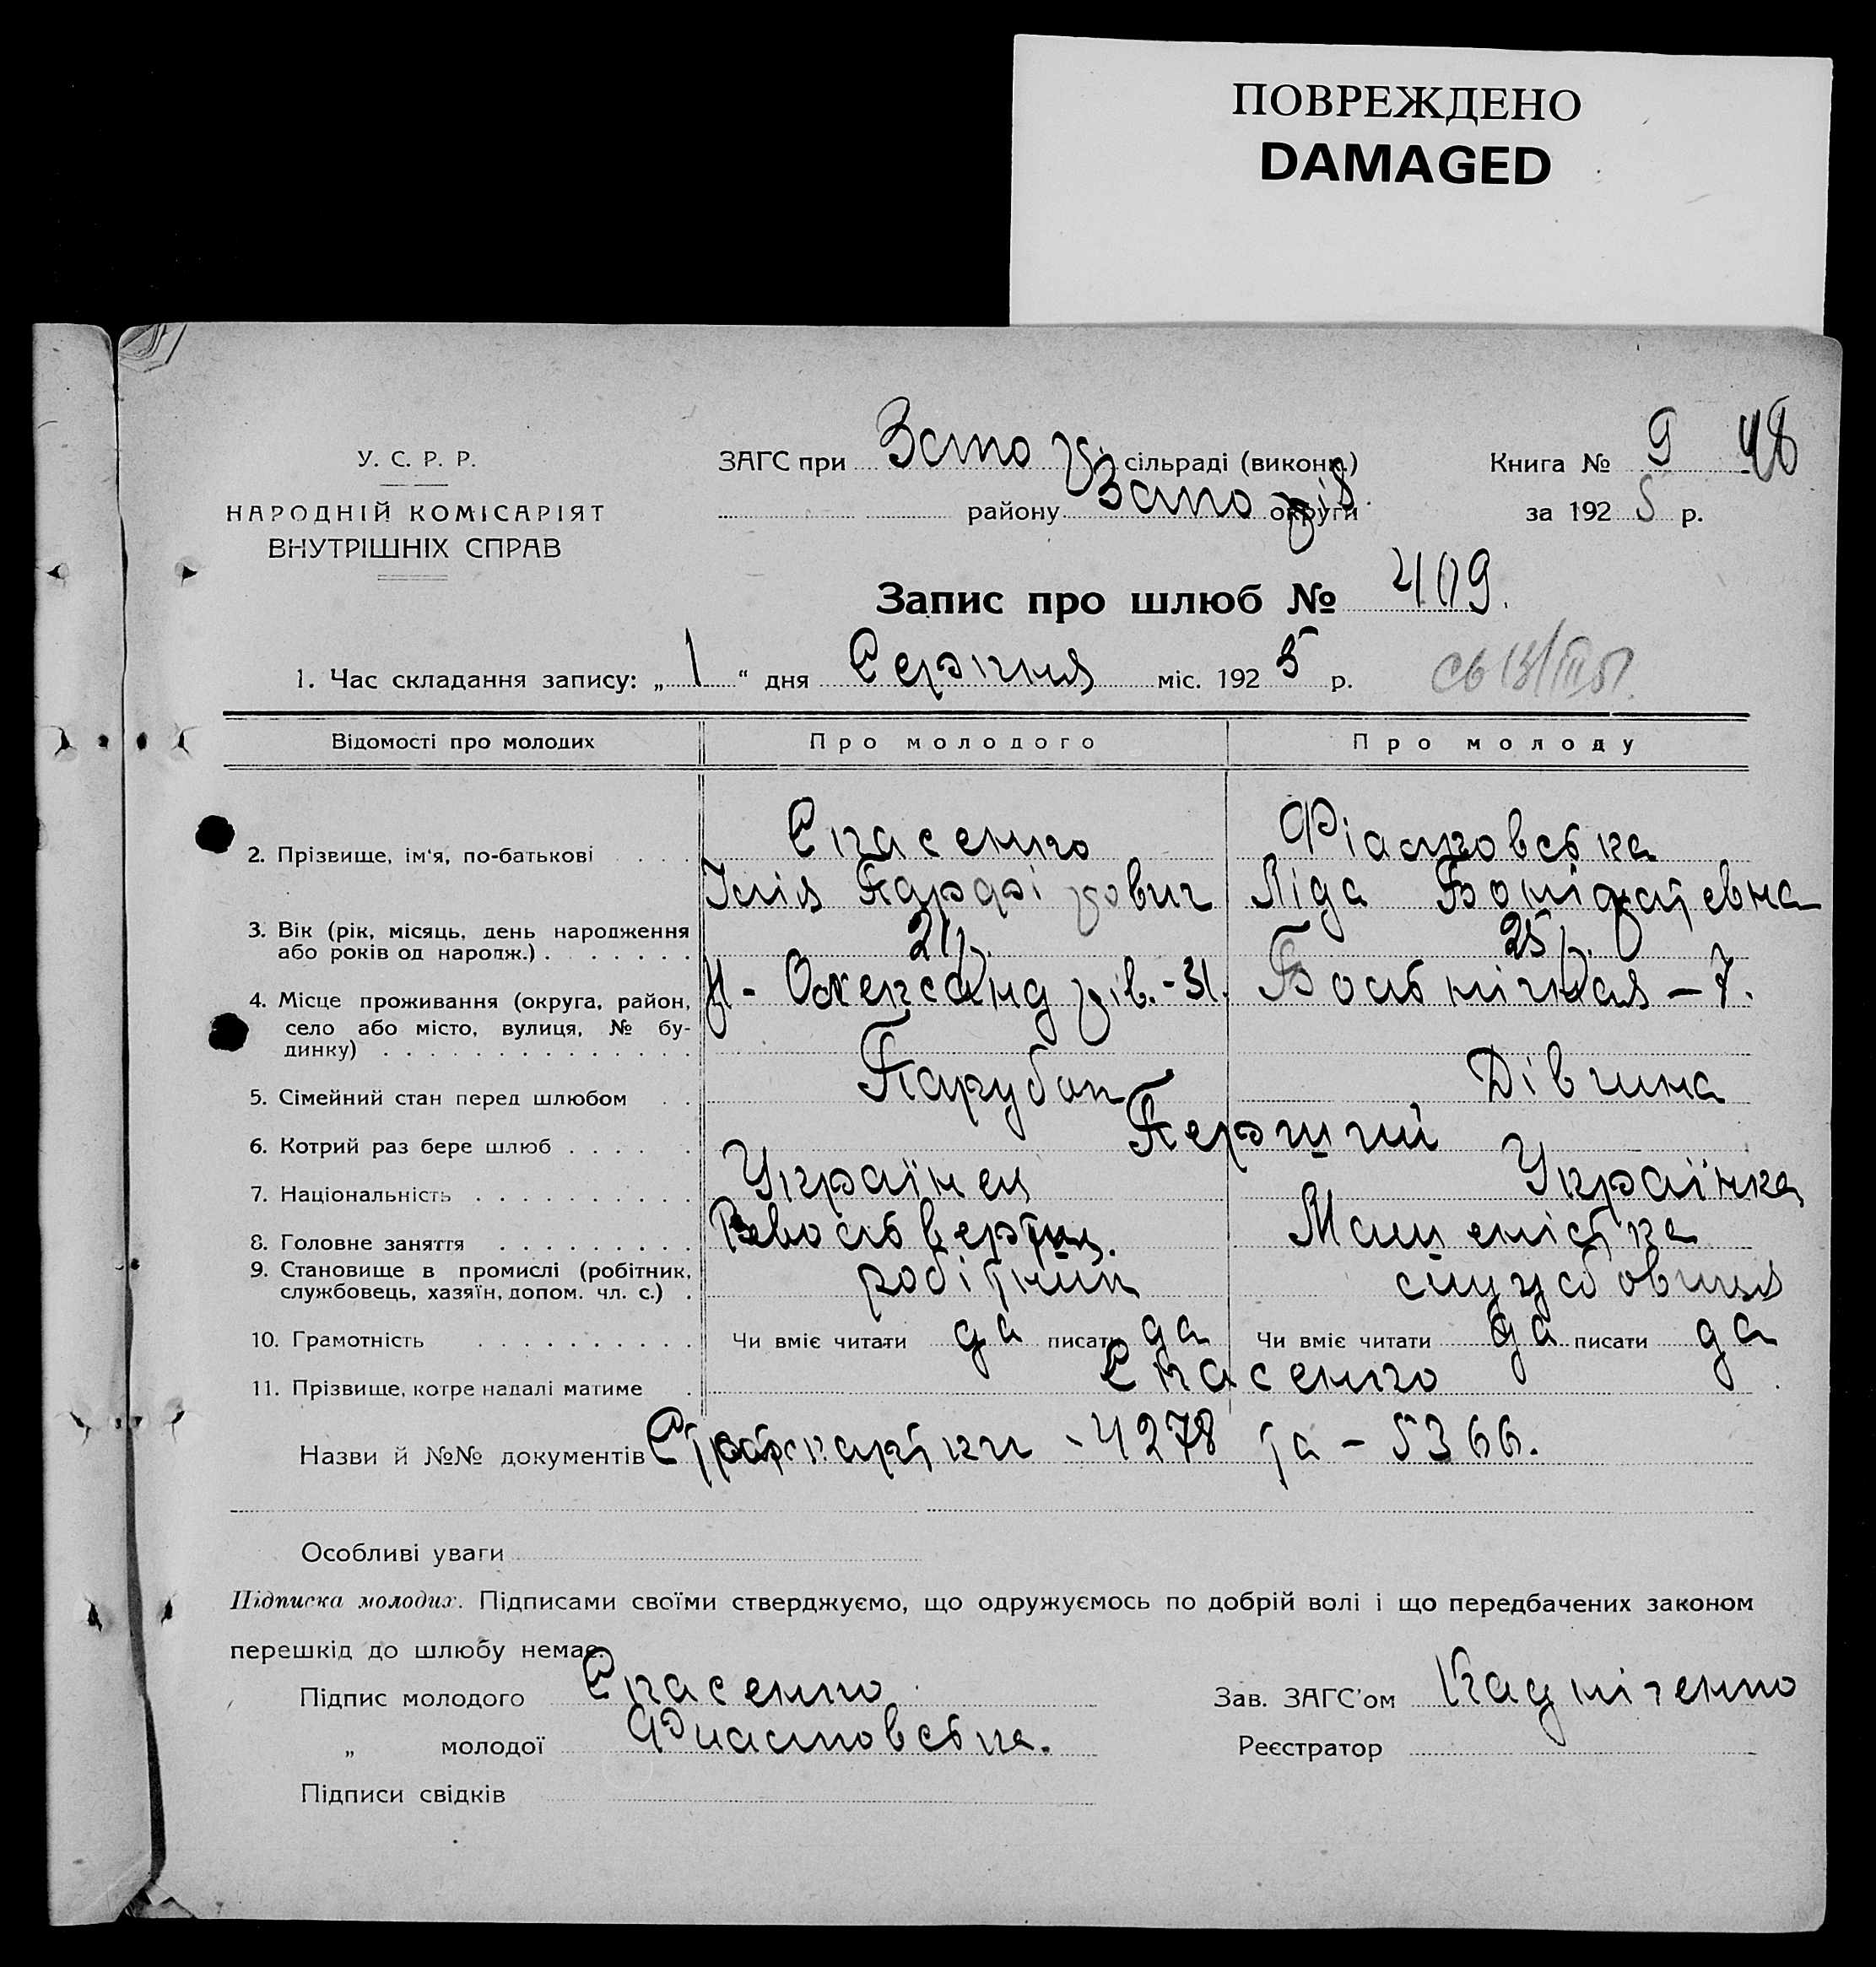 ПОВРЕЖДЕНО
DAMAGED
У. С. Р. Р.
НАРОДНІЙ КОМІСАРІЯТ
ВНУТРІШНІХ СПРАВ
ЗАГС при сільраді (виконк.)
району округи
Книга № 9 48
за 192 5 р.
Запис про шлюб № 409.
1. Час складання запису: „ 1 “ дня Серпня міс. 192 5 р.
Відомості про молодих Про молодого Про молоду
2. Прізвище, ім'я, по-батькові Спасенко Фіалковська
Ілія Ліда
3. Вік (рік, місяць, день народження 21р. 25р.
або років од народж.)
4. Місце проживання (округа, район, - 31. - 7.
село або місто, вулиця, № бу-
динку)
5. Сімейний стан перед шлюбом Парубок Дівчина
6. Котрий раз бере шлюб Перший
7. Національність Українец Українка
8. Головне заняття
9. Становище в промислі (робітник, робітник службовиця
службовець, хазяїн, допом. чл. с.)
10. Грамотність Чи вміє читати да писати да Чи вміє читати да писати да
11. Прізвище, котре надалі матиме Спасенко
Назви й №№ документів - 4278 та - 5366.
Особливі уваги
Підписка молодих. Підписами своїми стверджуємо, що одружуємось по добрій волі і що передбачених законом
перешкід до шлюбу немає.
Підпис молодого Спасенко Зав. ЗАГС'ом
„ молодої Фиалковська. Реєстратор
Підписи свідків